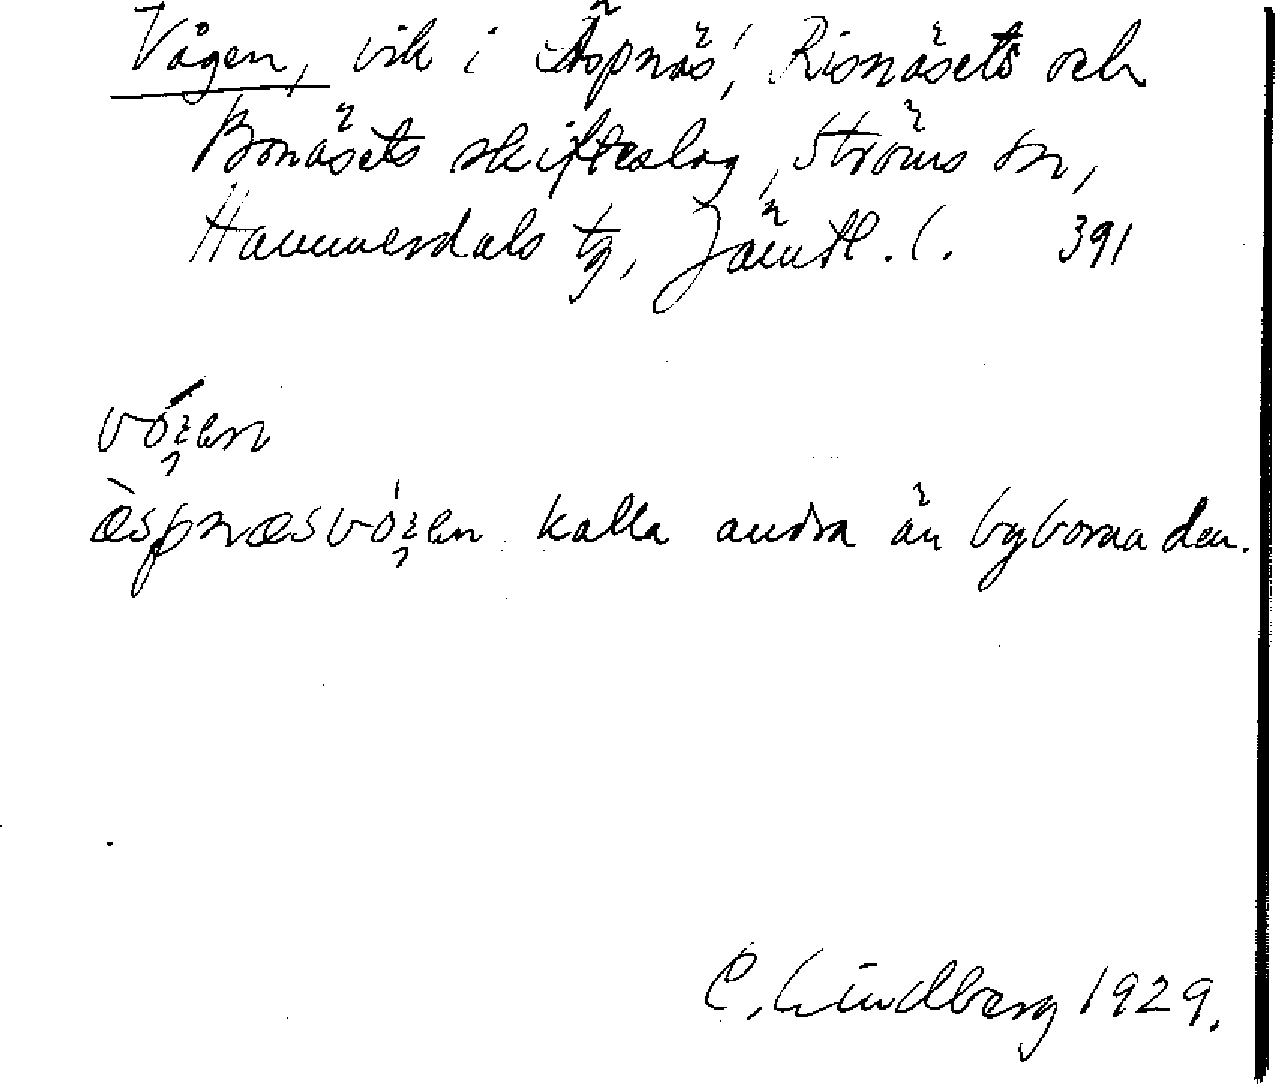 Vågen, vik i Äspnäs', Risnäsets och
Bonäsets skifteslag, Ströms sn,
Hammerdals tg, Jämtl. l. 391
vóꞫen
æ̀spnæsvóꞫen kalla andra än byborna den.
C. Lindberg 1929.